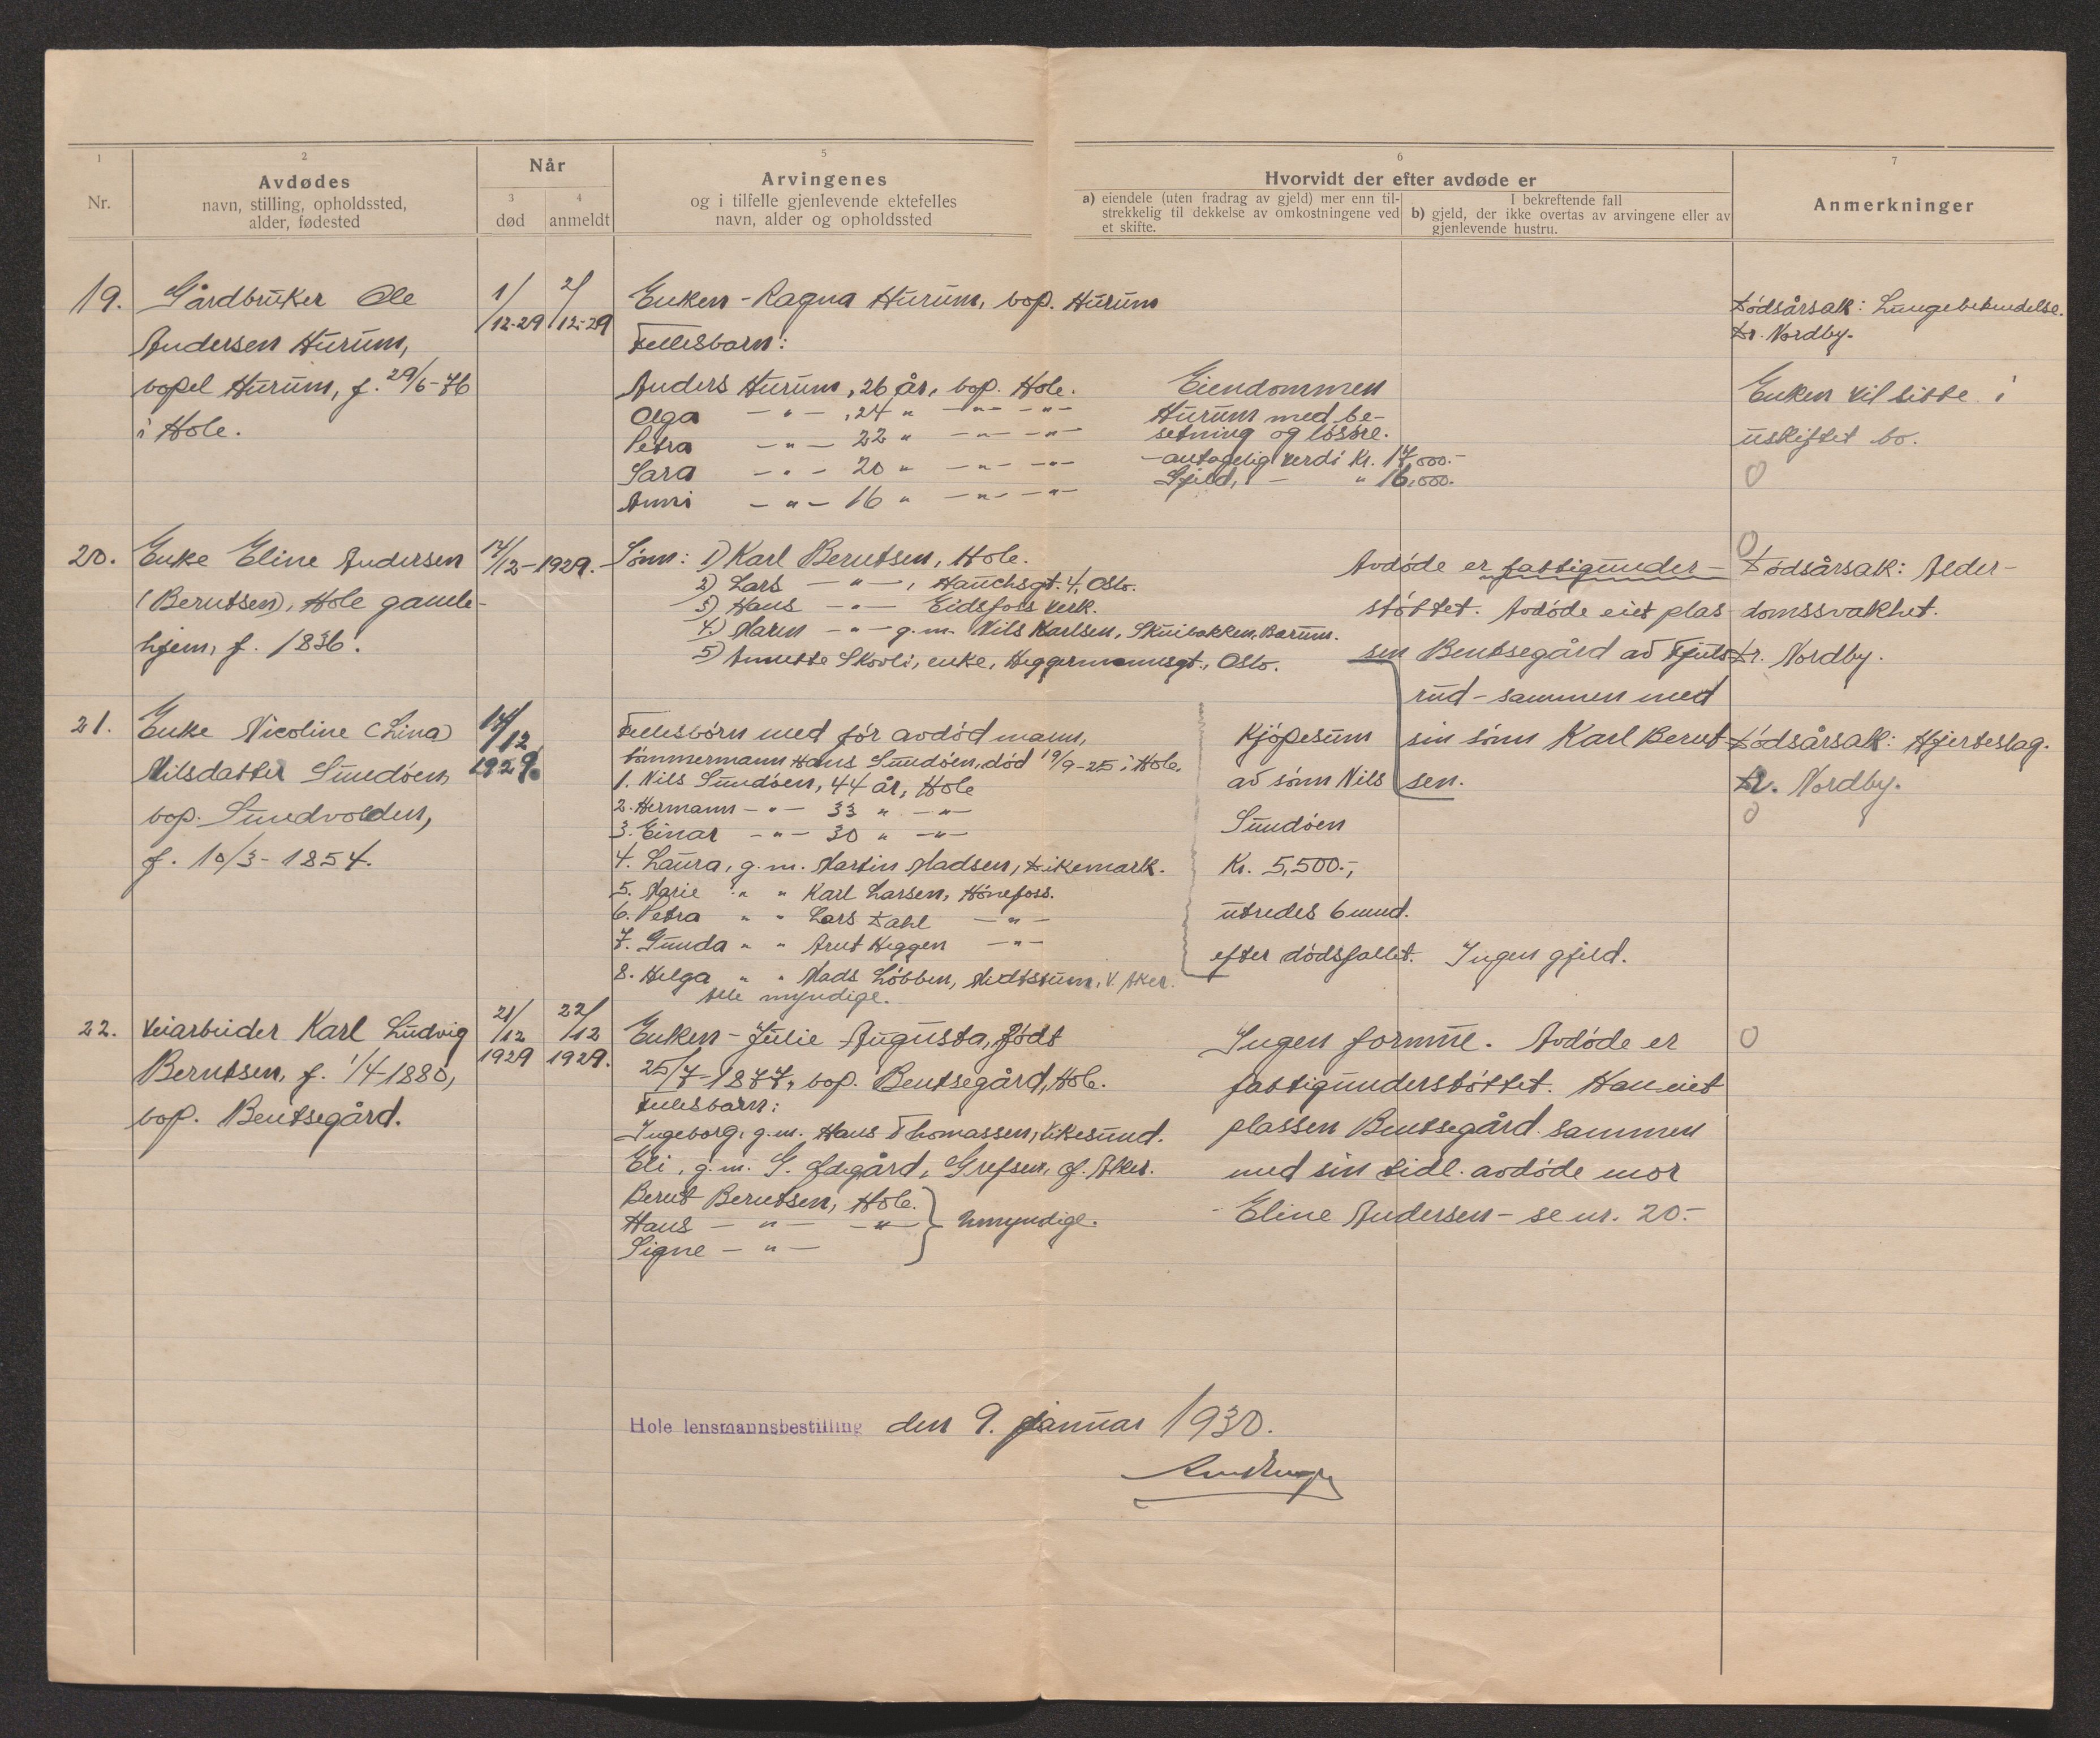 1
2
Når
5
6
7
Avdødes
Arvingenes
Hvorvidt der efter avdøde er
3
4
Nr.
navn, stilling, opholdssted,
alder, fødested
død
anmeldt
og i tilfelle gjenlevende ektefelles
navn, alder og opholdssted
a) eiendele (uten fradrag av gjeld) mer enn til-
strekkelig til dekkelse av omkostningene ved
et skifte.
I bekreftende fall
b) gjeld, der ikke overtas av arvingene eller av
gjenlevende hustru.
Anmerkninger
19.
Gårdbruker Ole
Andersen Hurum,
bopel Hurum, f. 29/6-76
i Hole.
1/12-29
2/12-29
Enken - Ragna Hurum, bop. Hurum
Fellesbarn:
Anders Hurum, 26 år, bop. Hole.
Olga - " - , 24 " - " - - " -
Petra - " - 22 " - " - - " -
Sara - " - 20 " - " - - " -
Anni - " - 16 " - " - - " -
Eiendommen
Hurum med be-
setning og løsøre.
- antagelig verdi Kr. 17,000.-
Gjeld, - " 16,000.-
Dødsårsak: Lungebetendelse.
Dr. Nordby.
Enken vil sitte i
uskiftet bo.
0
20.
Enke Eline Andersen
(Berntsen), Hole gamle-
hjem, f. 1836.
14/12-1929.
Sønn: 1) Karl Berntsen, Hole.
2) Lars - " - , Hauchsgt. 4, Oslo.
3) Hans - " - Eidsfoss Verk.
4.) Maren - " - g.m. Nils Karlsen, Skuibakken, Bærum.
5) Annette Skovli, enke, Heggermannsgt., Oslo.
Avdøde er fattigunder-
støttet. Avdøde eiet plas
sen Bentsegård av Fjuls
rud - sammen med
sin sønn Karl Bernt-
sen.
0
Dødsårsak: Alder-
domssvakhet.
Dr. Nordby.
21.
Enke Nicoline (Lina)
Nilsdatter Sundøen,
bop. Sundvolden,
f. 10/3-1854.
14/12
1929.
Fellesbørn med før avdød mann,
tømmermann Hans Sundøen, død 19/9-25 i Hole.
1. Nils Sundøen, 44 år, Hole
2. Hermann - " - 33 " - " -
3. Einar - " - 30 " - " -
4. Laura, g.m. Martin Madsen, Dikemark.
5. Marie " " Karl Larsen, Hønefoss.
6. Petra " " Lars Dahl - " -
7. Gunda " " Arnt Heggen - " -
8. Helga " " Mads Løbben, , V. Aker.
Alle myndige.
Kjøpesum
av sønn Nils
Sundøen
Kr. 5,500.-,
utredes 6 mnd.
efter dødsfallet. Ingen gjeld.
Dødsårsak: Hjerteslag.
Dr. Nordby.
0
22.
Veiarbeider Karl Ludvig
Berntsen, f. 1/4-1880,
bop. Bentsegård.
21/12
1929
22/12
1929.
Enken - Julie Augusta, født
25/7-1877, bop. Bentsegård, Hole.
Fellesbarn:
Ingeborg, g.m. Hans Thomassen, Vikesund.
Eli, g.m. G. Ødegård, Grefsen, Ø. Aker.
Bernt Berntsen, Hole.
Hans - " - - " -
Signe - " -
Umyndige.
Ingen formue. Avdøde er
fattigunderstøttet. Han eiet
plassen Bentsegård sammen
med sin tidl. avdøde mor
- Eline Andersen - se nr. 20.-
0
Hole lensmannsbestilling den 9. januar 1930.